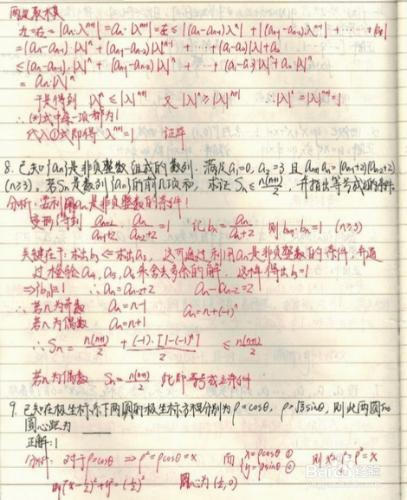 两边取模
左=|aₙ·λⁿ⁺¹|=aₙ·|λ|ⁿ⁺¹=右≤|(aₙ-aₙ₋₁)λⁿ|+|(aₙ₋₁-aₙ₋₂)λⁿ⁻¹|+
=(aₙ-aₙ₋₁)·|λ|ⁿ+(aₙ₋₁-aₙ₋₂)|λ|ⁿ⁻¹+ +(a₁-a₀)|λ|+a₀
≤(aₙ-aₙ₋₁)·|λ|ⁿ+(aₙ₋₁-aₙ₋₂)|λ|ⁿ+ +(a₁-a₀)|λ|ⁿ+a₀|λ|ⁿ
=aₙ·|λ|ⁿ
于是得到 |λ|ⁿ⁺¹≤|λ|ⁿ 又|λ|ⁿ⁺¹≥|λ|ⁿ ∴|λ|ⁿ=|λ|ⁿ⁺¹=1
代入①式即得 λⁿ⁺¹=1 证毕
8. 已知{aₙ}是非负整数组成的数列, 满足a₁=0, a₂=3 且aₙ₊₁aₙ=(aₙ₋₁+2)(aₙ₋₂+2)
(n≥3), 若Sₙ是数列{aₙ}的前n项和, 求证Sₙ≤n(n+1)/2, 并指出等号成立的条件.
分析: 若利用aₙ是非负整数的条件!
变形得到 =1 记bₙ= 则bₙ·bₙ₋₁=1 (n≥3)
关键在于:求出b₃⇔求出a₃, 这可通过利用aₙ是非负整数的条件, 并通
过检验a₄, a₅, a₆来舍去多余的解, 这样得出b=1
⇒{bₙ}≡1 ∴aₙ=aₙ₋₂+2 aₙ-aₙ₋₂=2
∴若n为奇数 aₙ=n-1 aₙ=n+(-1)ⁿ
若n为偶数 aₙ=n+1
∴Sₙ=n(n+1)/2+(-1)·[1-(-1)ⁿ]/2 ≤n(n+1)/2
若n为偶数 Sₙ=n(n+1)/2 此即等号成立条件
9. 已知在极坐标系下两圆的极坐标方程分别为ρ=cosθ, ρ=√3sinθ, 则此两圆的
圆心距为
正解: 1
分析: 对于ρ=cosθ ⇒ρ²=ρcosθ=x 而 x=ρcosθ ① y=ρsinθ ② 则x²+y²=ρ²=x
即(x-½)²+y²=(½)² 圆心为(½,0)